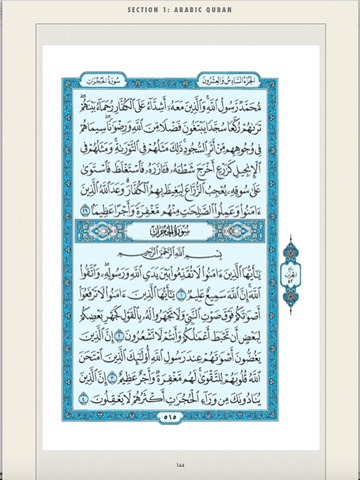 SECTION 1: ARABIC QURAN
الجزء السادس والعشرون سورة الحجرات
مُّحَمَّدٌ رَّسُولُ اللَّهِ وَالَّذِينَ مَعَهُ أَشِدَّاءُ عَلَى الْكُفَّارِ رُحَمَاءُ بَيْنَهُمْ
تَرَىٰهُمْ رُكَّعًا سُجَّدًا يَبْتَغُونَ فَضْلًا مِّنَ اللَّهِ وَرِضْوَٰنًا سِيمَاهُمْ
فِي وُجُوهِهِم مِّنْ أَثَرِ السُّجُودِ ذَٰلِكَ مَثَلُهُمْ فِي التَّوْرَىٰةِ وَمَثَلُهُمْ فِي
الْإِنجِيلِ كَزَرْعٍ أَخْرَجَ شَطْـَٔهُ فَـَٔازَرَهُ فَاسْتَغْلَظَ فَاسْتَوَىٰ
عَلَىٰ سُوقِهِ يُعْجِبُ الزُّرَّاعَ لِيَغِيظَ بِهِمُ الْكُفَّارَ وَعَدَ اللَّهُ الَّذِينَ
ءَامَنُوا وَعَمِلُوا الصَّٰلِحَٰتِ مِنْهُم مَّغْفِرَةً وَأَجْرًا عَظِيمًا ٢٩
سورة الحجرات
بِسْمِ اللَّهِ الرَّحْمَٰنِ الرَّحِيمِ
يَٰٓأَيُّهَا الَّذِينَ ءَامَنُوا لَا تُقَدِّمُوا بَيْنَ يَدَيِ اللَّهِ وَرَسُولِهِ وَاتَّقُوا
اللَّهَ إِنَّ اللَّهَ سَمِيعٌ عَلِيمٌ ١ يَٰٓأَيُّهَا الَّذِينَ ءَامَنُوا لَا تَرْفَعُوا
أَصْوَٰتَكُمْ فَوْقَ صَوْتِ النَّبِيِّ وَلَا تَجْهَرُوا لَهُ بِالْقَوْلِ كَجَهْرِ بَعْضِكُمْ
لِبَعْضٍ أَن تَحْبَطَ أَعْمَٰلُكُمْ وَأَنتُمْ لَا تَشْعُرُونَ ٢ إِنَّ الَّذِينَ
يَغُضُّونَ أَصْوَٰتَهُمْ عِندَ رَسُولِ اللَّهِ أُولَٰٓئِكَ الَّذِينَ امْتَحَنَ
اللَّهُ قُلُوبَهُمْ لِلتَّقْوَىٰ لَهُم مَّغْفِرَةٌ وَأَجْرٌ عَظِيمٌ ٣ إِنَّ الَّذِينَ
يُنَادُونَكَ مِن وَرَاءِ الْحُجُرَٰتِ أَكْثَرُهُمْ لَا يَعْقِلُونَ ٤
٥١٥